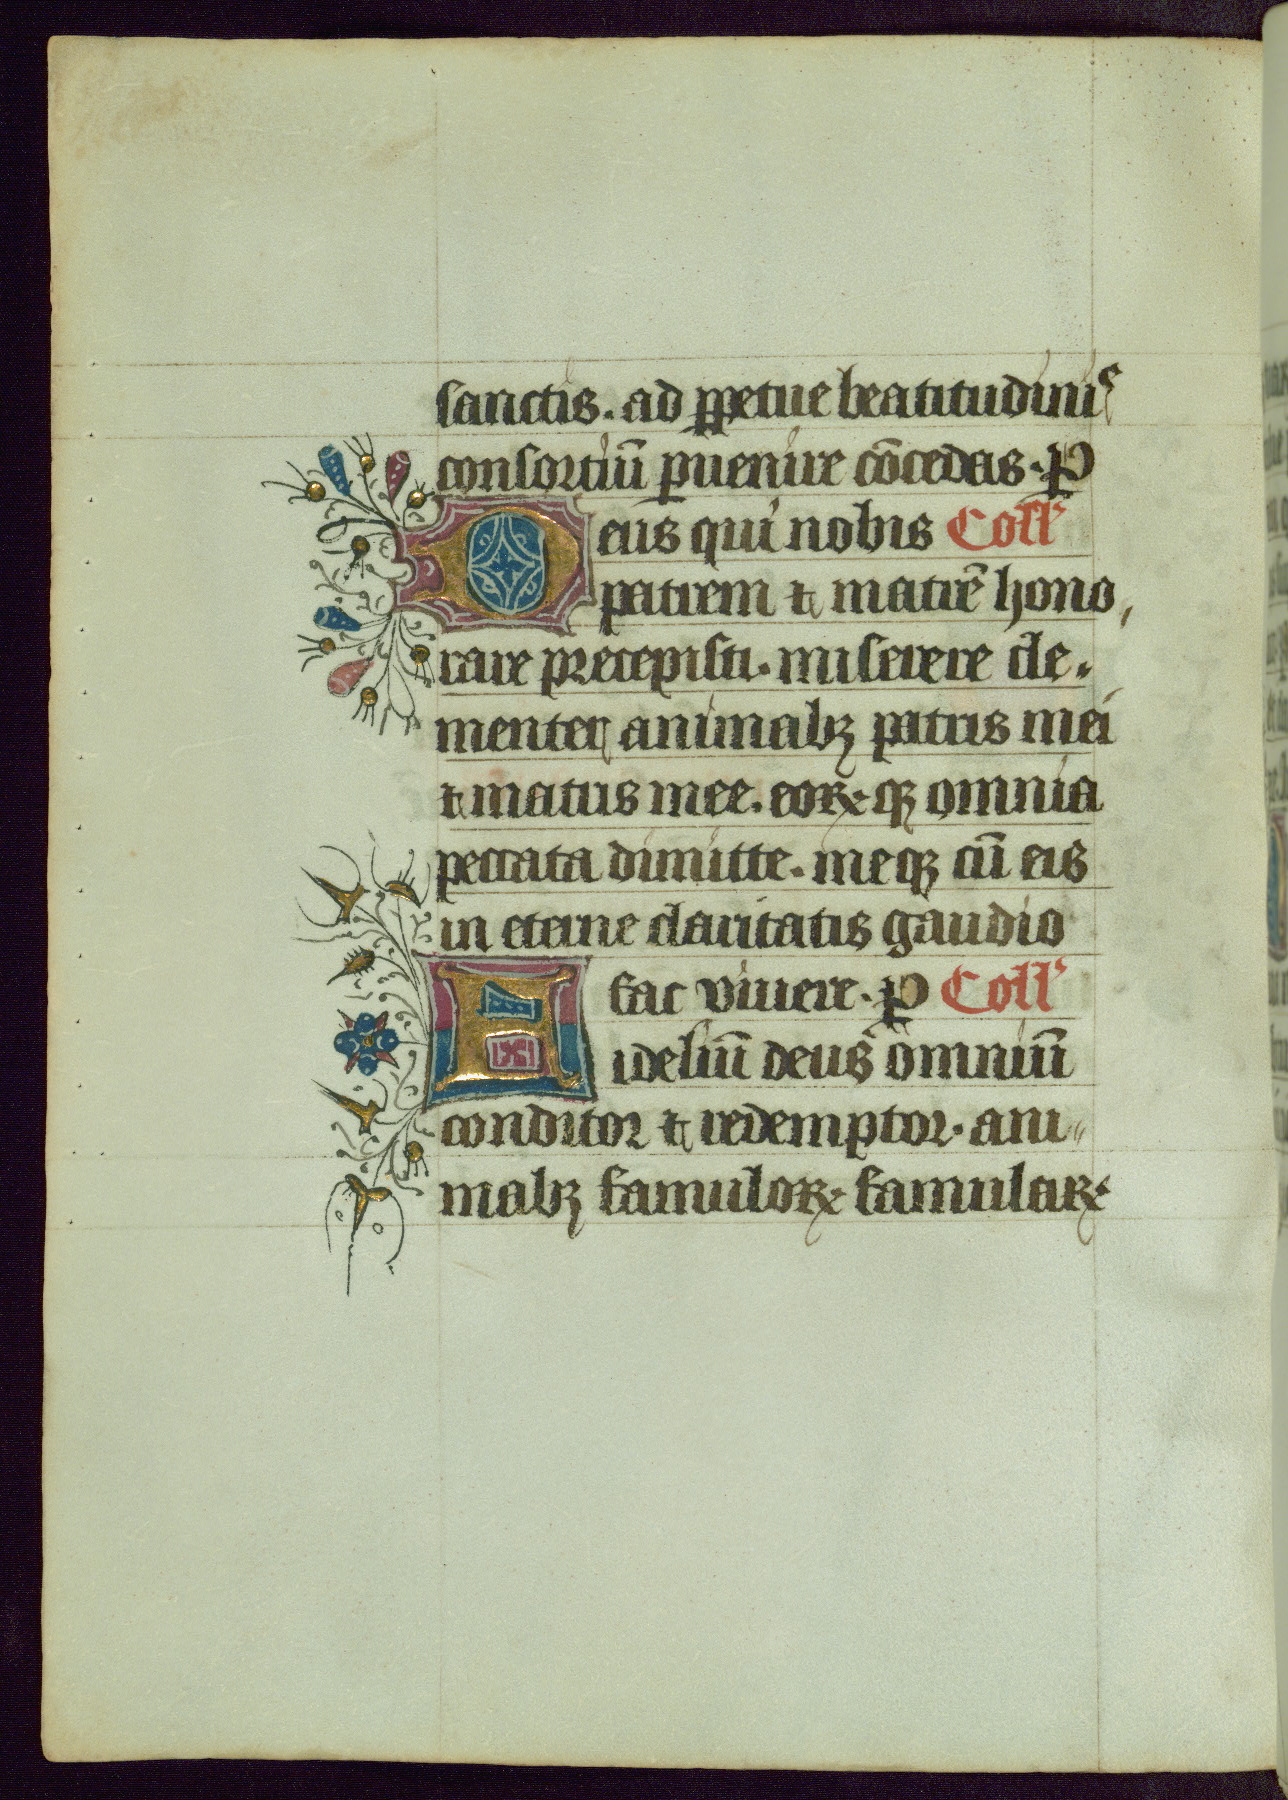 sanctis. ad ꝑpetue beatitudinis
consortiū ꝑuenire cōcedas. P
Deus qui nobis Coll'
patrem ⁊ matrē hono,
rare precepisti. miserere cle-
menter animabꝫ patris mei
⁊ matris mee. eoꝝ qꝫ omnia
peccata dimitte. meqꝫ cū eis
in eterne claritatis gaudio
fac viuere. P Coll'
Fideliū deus omniū
conditor ⁊ redemptor. ani-
mabꝫ famuloꝝ famulaꝝ